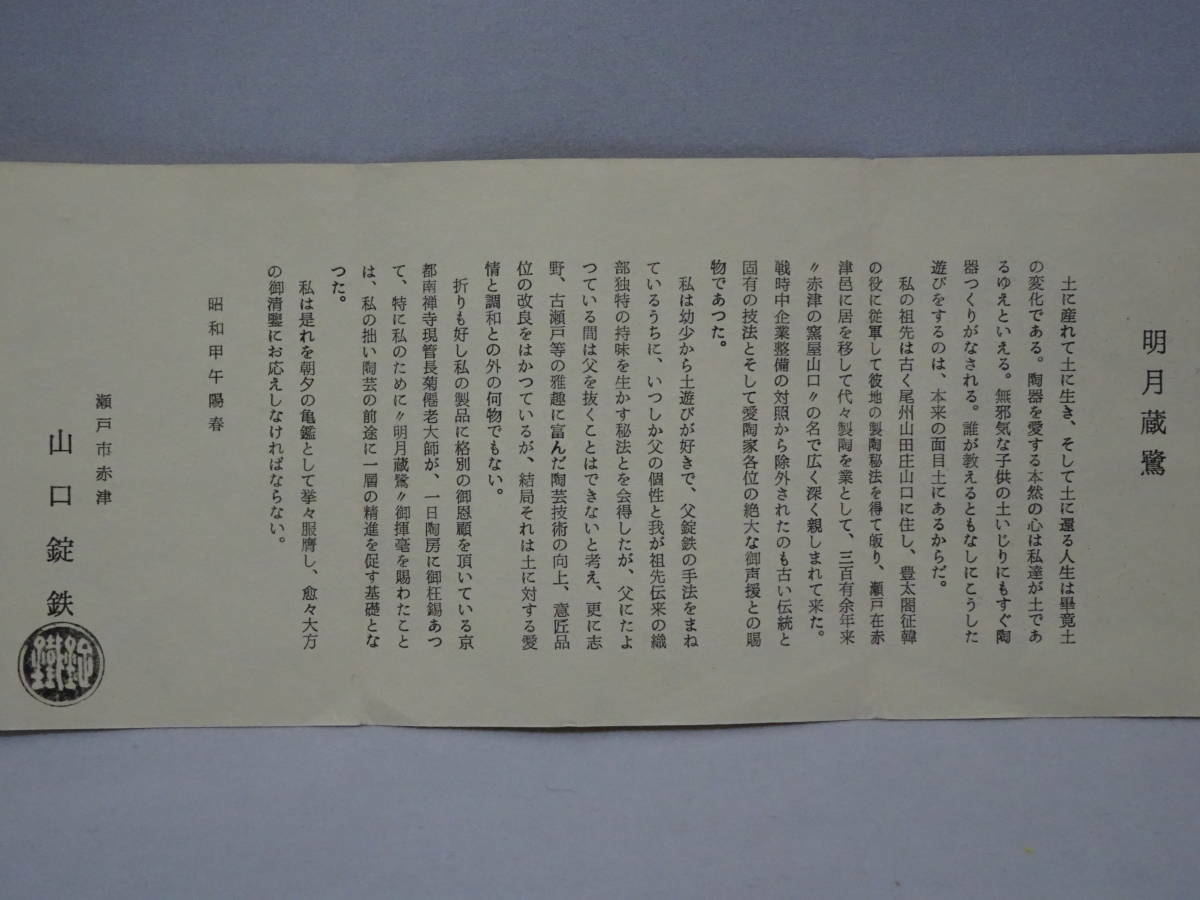 明月蔵鷺
土に産れて土に生き、そして土に還る人生は畢竟土
の変化である。陶器を愛する本然の心は私達が土であ
るゆえといえる。無邪気な子供の土いじりにもすぐ陶
器つくりがなされる。誰が教えるともなしにこうした
遊びをするのは、本来の面目土にあるからだ。
私の祖先は古く尾州山田庄山口に住し、豊太閤征韓
の役に従軍して彼地の製陶秘法を得て皈り、瀬戸在赤
津邑に居を移して代々製陶を業として、三百有余年来
〃赤津の窯屋山口〃の名で広く深く親しまれて来た。
戦時中企業整備の対照から除外されたのも古い伝統と
固有の技法とそして愛陶家各位の絶大な御声援との賜
物であつた。
私は幼少から土遊びが好きで、父錠鉄の手法をまね
ているうちに、いつしか父の個性と我が祖先伝来の織
部独特の持味を生かす秘法とを会得したが、父にたよ
つている間は父を抜くことはできないと考え、更に志
野、古瀬戸等の雅趣に富んだ陶芸技術の向上、意匠品
位の改良をはかつているが、結局それは土に対する愛
情と調和との外の何物でもない。
折りも好し私の製品に格別の御恩顧を頂いている京
都南禅寺現管長菊僊老大師が、一日陶房に御枉錫あつ
て、特に私のために〃明月蔵鷺〃御揮毫を賜わたこと
は、私の拙い陶芸の前途に一層の精進を促す基礎とな
つた。
私は是れを朝夕の亀鑑として挙々服膺し、愈々大方
の御清鑒にお応えしなければならない。
昭和甲午陽春
瀬戸市赤津
山口錠鉄